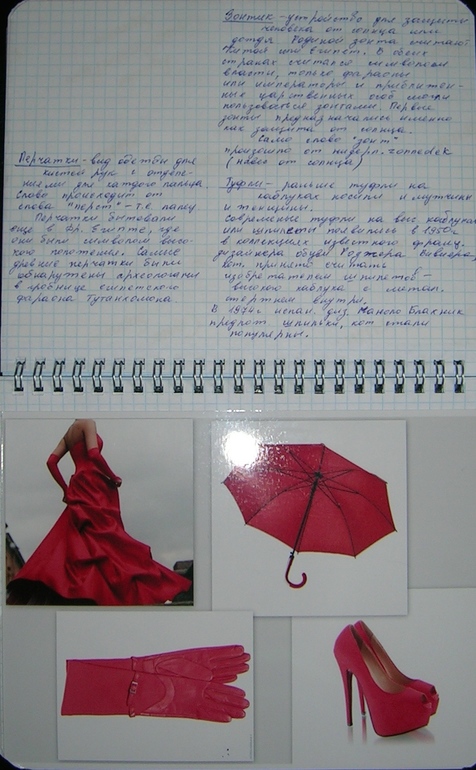 Зонтик - устройство для защиты
человека от солнца или
дождя. Родиной зонта считают
Китай или Египет. В обеих
странах считался символом
власти, только фараоны
или императоры и приближен-
ные царственных особ могли
пользоваться зонтами. Первые
зонты предназначались именно
как защита от солнца.
Само слово "зонт"
произошло от нидерл. zonnedek
(навес от солнца)
Перчатки - вид одежды для
кистей рук с отделе-
ниями для каждого пальца.
Слово происходит от
слова "перст" - т.е. палец
Перчатки бытовали
еще в Др. Египте, где
они были символом высо-
кого положения. Самые
древние перчатки были
обнаружены археологами
в гробнице египетского
фараона Тутанхамона
Туфли - раньше туфли на
каблуках носили и мужчины
и женщины.
Современные туфли на выс. каблуках
или шпильки появились в 1950г
в коллекциях известного франц.
дизайнера обуви Роджера Вивьера,
кот. принято считать
изобретателем шпилек -
высокого каблука с метал.
стержнем внутри.
В 1974г испан. диз. Маноло Бланик
шпильки, кот стали
популярны.